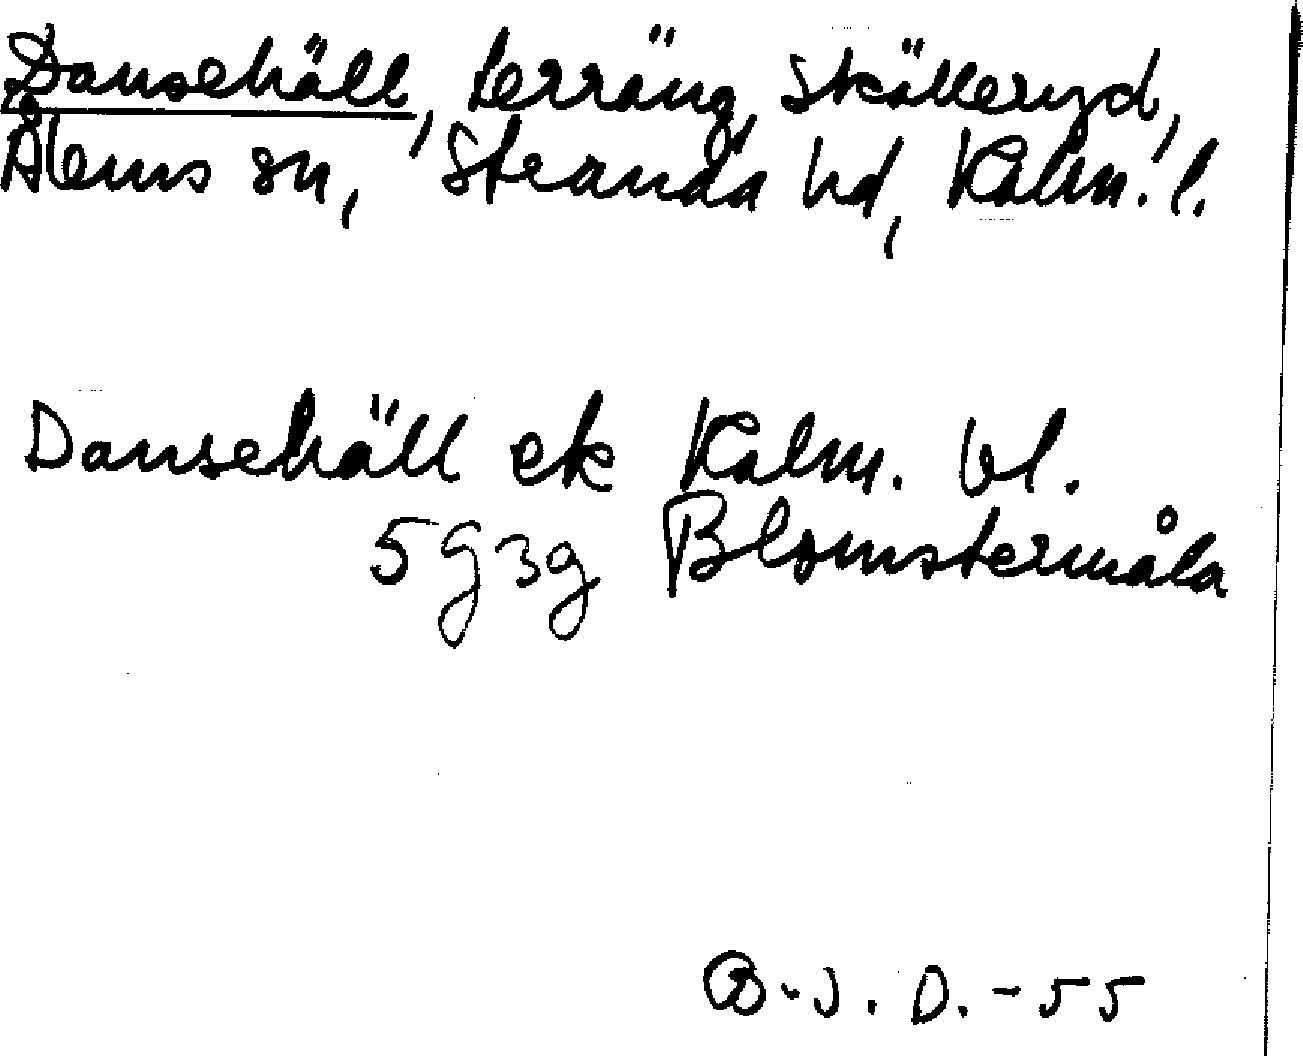 Dansehäll, terräng, Skälleryd,
Ålems sn, Stranda hd, Kalm. l.
Dansehäll ek Kalm. bl.
5G3g Blomstermåla
B-J. D. -55